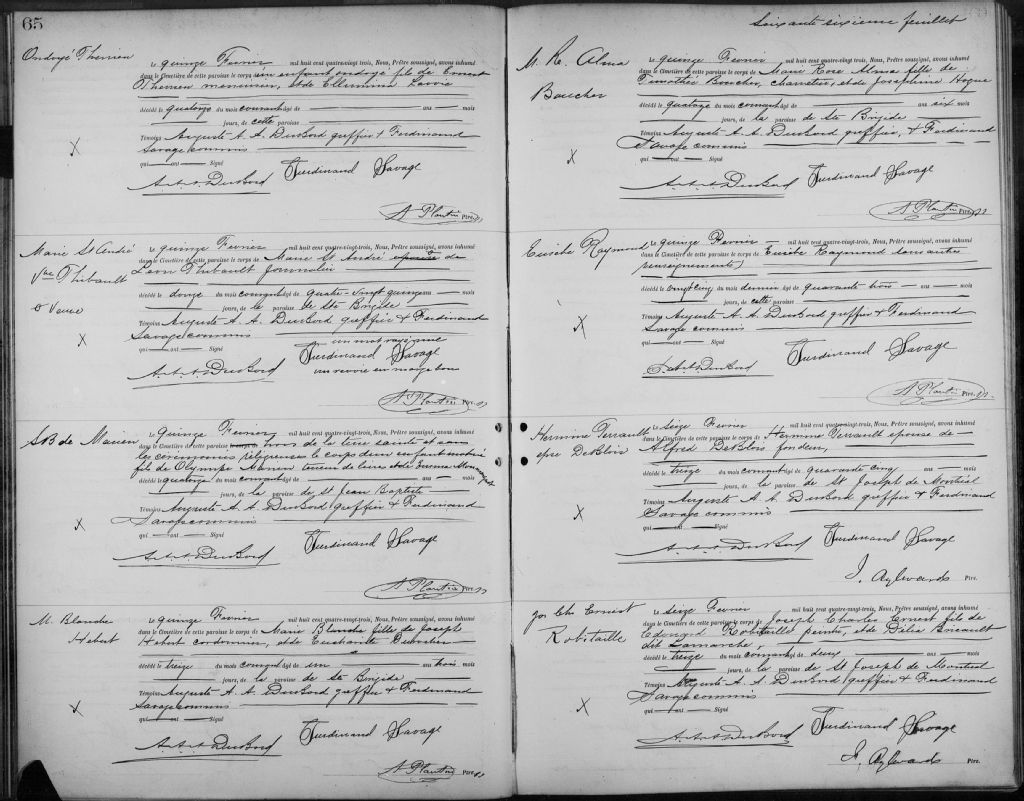 65
Ondoyé Therrien
Le quinze Fevrier mil huit cent quatre-vingt-trois, Nous, Prêtre soussigné, avons inhumé
dans le Cimetière de cette paroisse le corps de un enfant ondoyé fils de Ernest
Therrien menuisier, et de
décédé le quatorze du mois courant âgé de ans mois
jours, de cette paroisse
Témoins Auguste A. A. DuBord greffier & Ferdinand
Savage commis
qui ont Signé
A. A. A. DuBord Ferdinand Savage
A Plantin Ptre.
Marie St André
Vve Thibault
Le quinze Fevrier mil huit cent quatre-vingt-trois, Nous, Prêtre soussigné, avons inhumé
dans le Cimetière de cette paroisse le corps de Marie St André epouse de
Leon Thibault journalier
décédé le douze du mois courant âgé de quatre-vingt quinze ans mois
jours, de la paroisse de Ste Brigide
Témoins Auguste A. A. DuBord greffier & Ferdinand
Savage commis
qui ont Signé
un mot rayé nul
A. A. A. DuBord Ferdinand Savage
un renvoi en marge bon
A Plantin Ptre.
S B de Marien
Le quinze Fevrier mil huit cent quatre-vingt-trois, Nous, Prêtre soussigné, avons inhumé
dans le Cimetière de cette paroisse le corps de hors de la terre sainte et sans
les cérémonies réligieuses le corps d'un enfant
fils de Olympe Marien teneur de livres et de Emma
décédé le quatorze du mois courant âgé de ans mois
jours, de la paroisse de St Jean Baptiste
Témoins Auguste A. A. DuBord greffier & Ferdinand
Savage commis
qui ont Signé
A. A. A. DuBord Ferdinand Savage
A Plantin Ptre.
M. Blanche
Hebert
Le quinze Fevrier mil huit cent quatre-vingt-trois, Nous, Prêtre soussigné, avons inhumé
dans le Cimetière de cette paroisse le corps de Marie Blanche fille de Joseph
Hebert cordonnier, et de
décédé le treize du mois courant âgé de un ans trois mois
jours, de la paroisse de Ste Brigide
Témoins Auguste A. A. DuBord greffier & Ferdinand
Savage commis
qui ont Signé
A. A. A. DuBord Ferdinand Savage
A Plantin Ptre.
Soixante sixieme feuillet
M. Re. Alma
Boucher
Le quinze Fevrier mil huit cent quatre-vingt-trois, Nous, Prêtre soussigné, avons inhumé
dans le Cimetière de cette paroisse le corps de Marie Rose Alma fille de
Timothée Boucher, charretier, et de Josephine Hogue
décédé le quatorze du mois courant âgé de ans six mois
jours, de la paroisse de Ste Brigide
Témoins Auguste A. A. DuBord greffier, & Ferdinand
Savage commis
qui ont Signé
A. A. A. DuBord Ferdinand Savage
A Plantin Ptre.
Eusèbe Raymond
Le quinze Fevrier mil huit cent quatre-vingt-trois, Nous, Prêtre soussigné, avons inhumé
dans le Cimetière de cette paroisse le corps de Eusèbe Raymond sans autres
renseignements)
décédé le vingt cinq du mois dernier âgé de quarante trois ans mois
jours, de cette paroisse
Témoins Auguste A. A. DuBord greffier & Ferdinand
Savage commis
qui ont Signé
A. A. DuBord Ferdinand Savage
A Plantin Ptre.
Hermine Perrault
epse DeBlois
Le seize Fevrier mil huit cent quatre-vingt-trois, Nous, Prêtre soussigné, avons inhumé
dans le Cimetière de cette paroisse le corps de Hermine Perrault epouse de
Alfred DeBlois fondeur,
décédé le treize du mois courant âgé de quarante cinq ans mois
jours, de la paroisse de St Joseph de Montréal
Témoins Auguste A. A. DuBord greffier & Ferdinand
Savage commis
qui ont Signé
A. A. A. DuBord Ferdinand Savage
J. Aylwards Ptre.
Jos. Chs Ernest
Robitaille
Le seize Fevrier mil huit cent quatre-vingt-trois, Nous, Prêtre soussigné, avons inhumé
dans le Cimetière de cette paroisse le corps de Joseph Charles Ernest fils de
Edouard Robitaille peintre, et de Délia Bricault
dit Lamarche,
décédé le treize du mois courant âgé de deux ans mois
jours, de la paroisse de St Joseph de Montréal
Témoins Auguste A. A. DuBord greffier & Ferdinand
Savage commis
qui ont Signé
A. A. A. DuBord Ferdinand Savage
J. Aylwards Ptre.